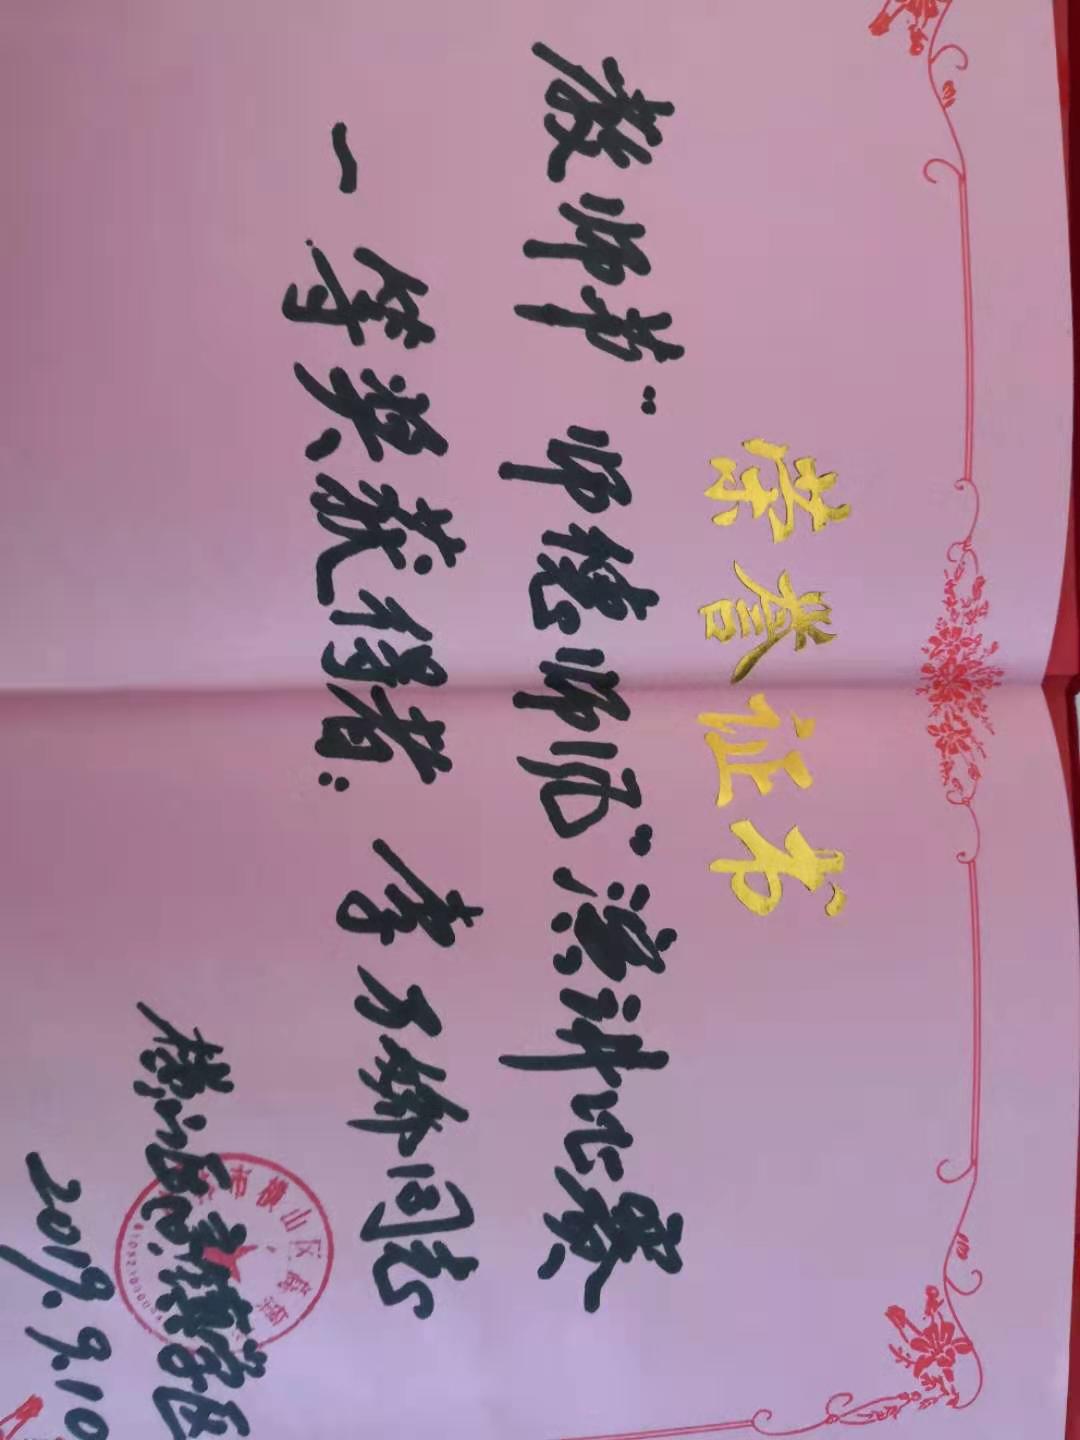 荣誉证书
教师节"师德师风"演讲比赛
一等奖获得者: 李万娇同志
横山区
2019.9.10
市横山区